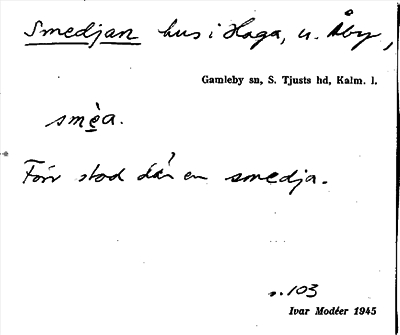 Smedjan hus i Haga, u. Åby,
Gamleby sn, S. Tjusts hd, Kalm. l.
smèa.
Förr stod där en smedja.
s. 103
Ivar Modéer 1945